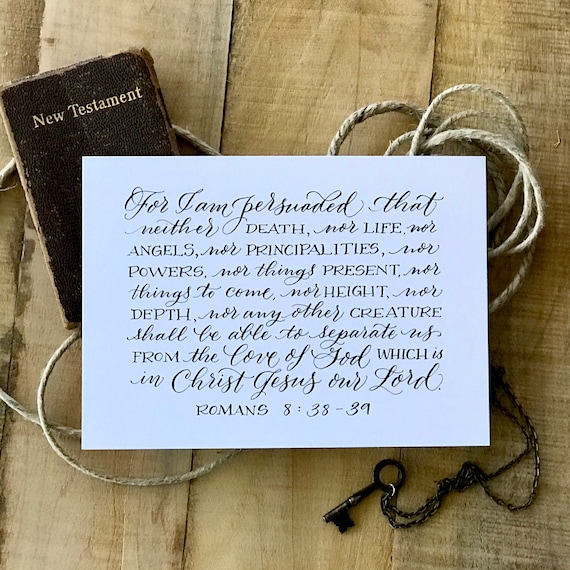 New Testament
For I am persuaded that
neither DEATH, nor LIFE, nor
ANGELS, nor PRINCIPALITIES, nor
POWERS, nor things PRESENT, nor
things to come, nor HEIGHT, nor
DEPTH, nor any other CREATURE
shall be able to separate us
FROM the love of God WHICH is
in Christ Jesus our Lord.
ROMANS 8:38-39